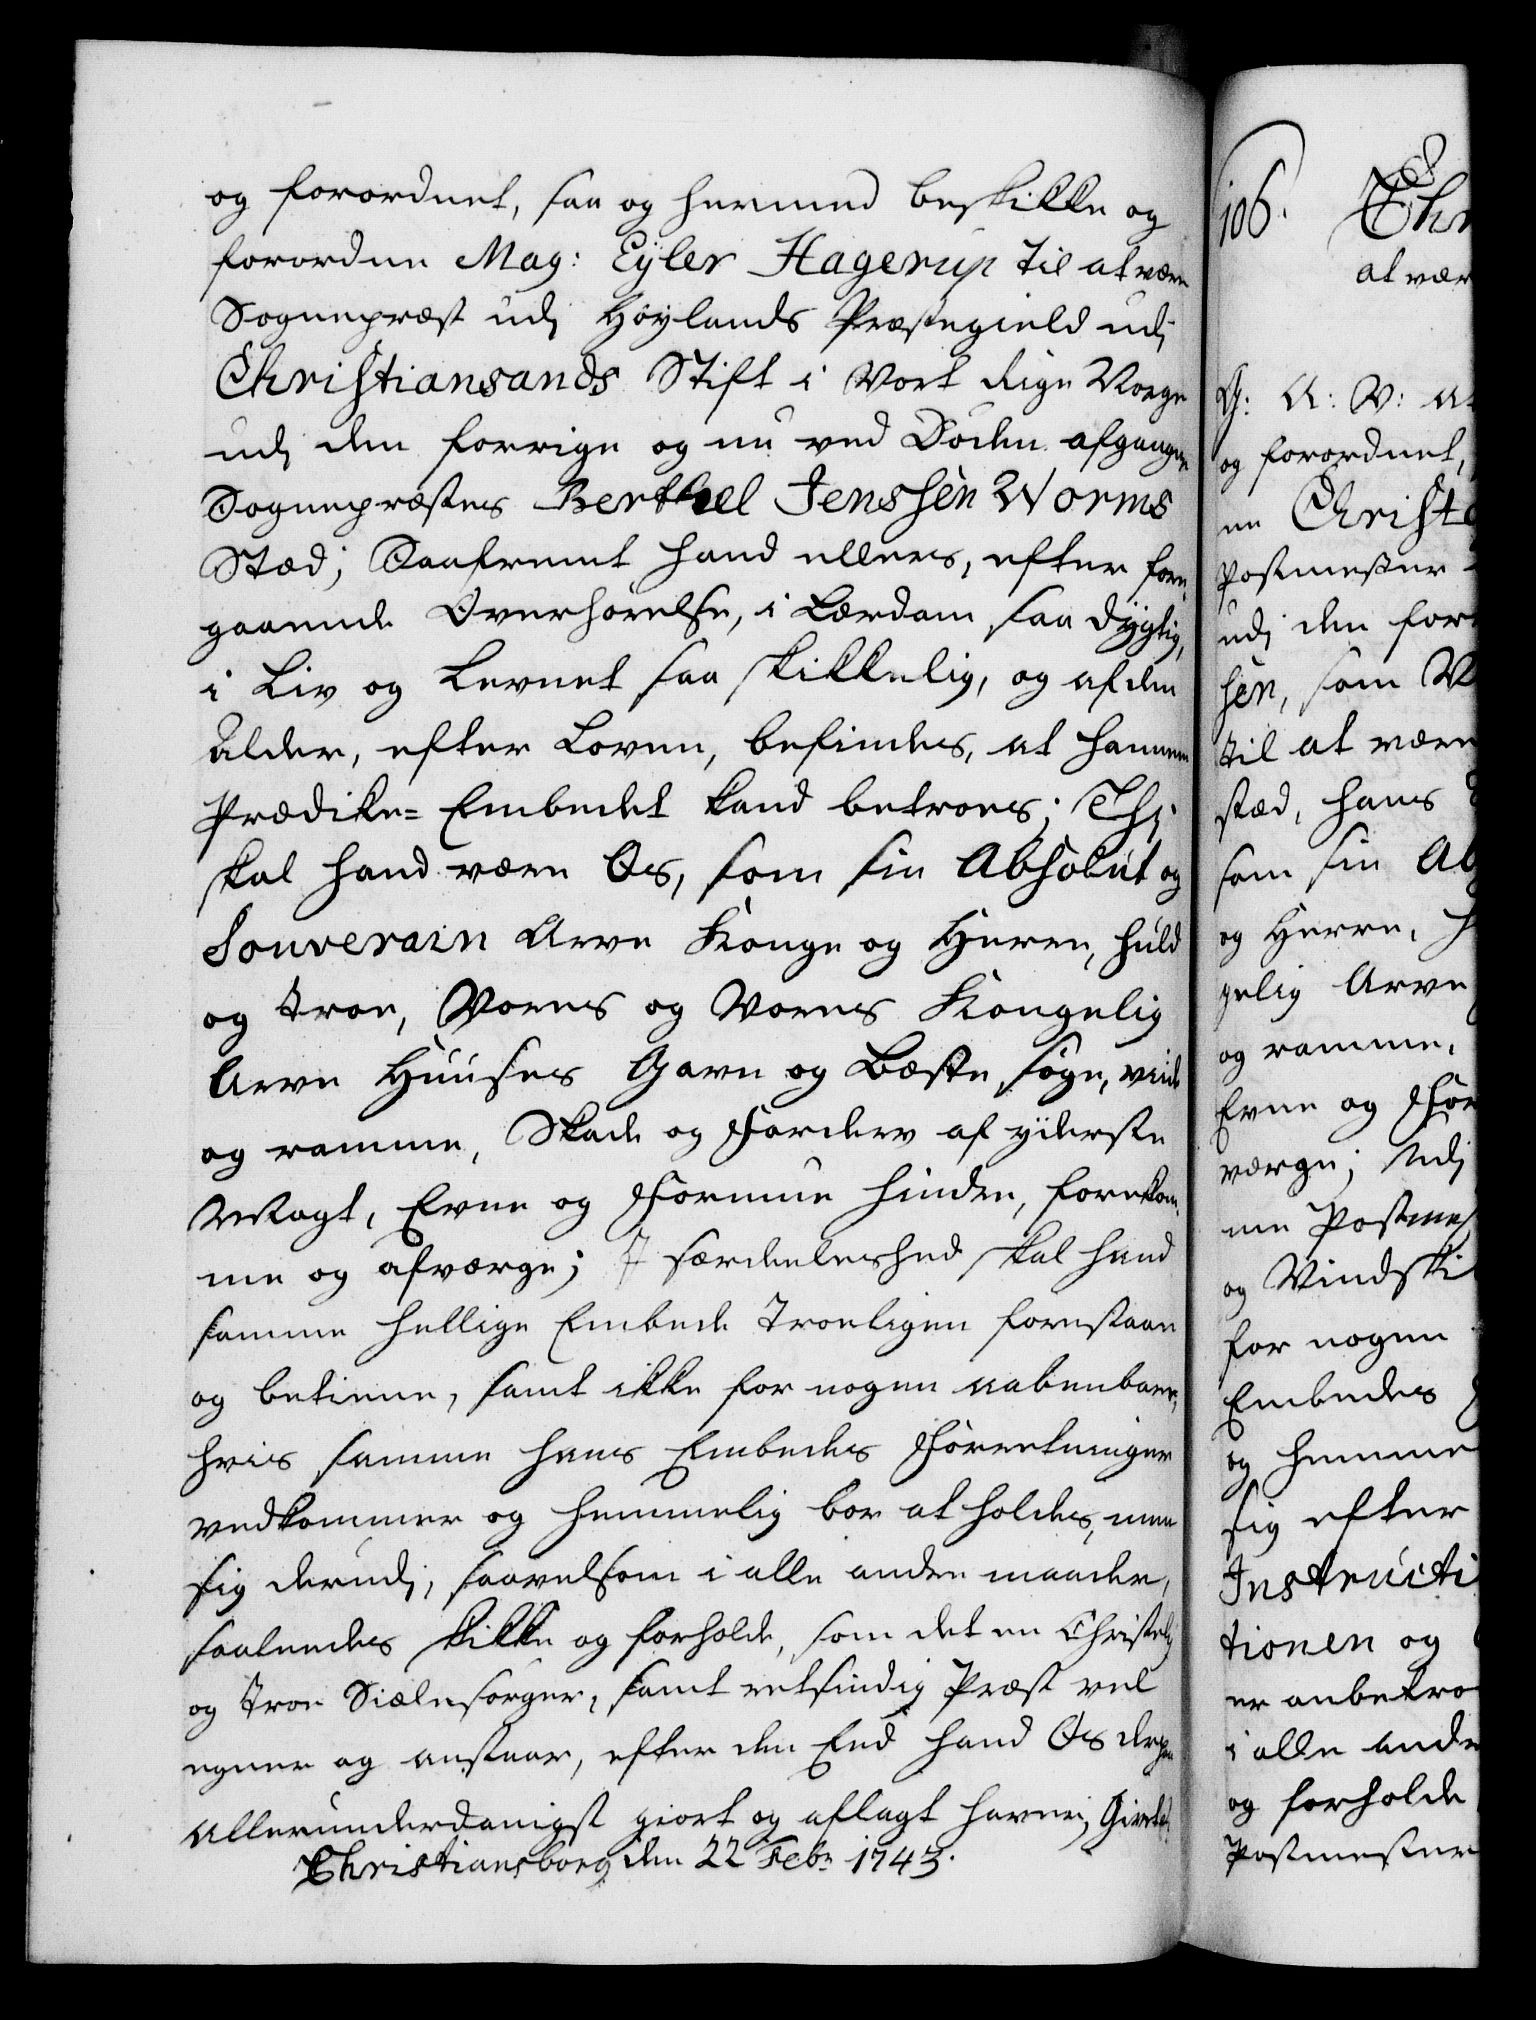 og forordnet, saa og hermed beskikke og
forordne Mag: Eyler Hagerup til at være
Sognepræst udj Höylands Præstegield udj
Christiansands Stift i Vort Rige Norge
udj den forrige og nu ved Döden afgangne
Sognepræstes Berthel Jenssen Worms
Stæd; Saafremt hand ellers, efter fore-
gaaende Overhörelse, i Lærdom saa dygtig,
i Liv og Levnet saa skikkelig, og af den
Alder, efter Loven, befindes, at hannem
Prædike-Embedet kand betroes; Thj
skal hand være Os, som sin Absolut og
Souverain Arve Konge og Herre, huld
og troe, Vores og Vores Kongelig
Arve Huuses Gavn og Bæste söge, vide
og ramme, Skade og Forderv af yderste
Magt, Evne og Formue hindre, forekom-
me og afværge; I særdeleshed skal hand
samme hellige Embede Troeligen forestaae
og betiene, samt ikke for nogen aabenbare,
hvis samme hans Embedes Forretninger
vedkommer og hemmelig bör at holdes, men
sig derudj, saavelsom i alle andre maader,
saaledes skikke og forholde, som det en Christelig
og troe Siælesörger, samt retsindig Præst vel
egner og anstaar, efter den Eed hand Os derpaa
allerunderdanigst giort og aflagt haver; Givet
Christiansborg den 22 Febr 1743.
106. Chr
at vær
G: A: V: At
og forordnet,
ne Christ
Postmester
udj den for
sen, som V
til at være
stæd, hans
som sin Ab
og Herre, h
gelig Arve
og ramme,
Evne og For
værge; Udj
me Postmes
og Vindski
for nogen
Embedes
og hemme
sig efter
Instructi
tionen og
er anbetro
i alle andr
og forholde
Postmester